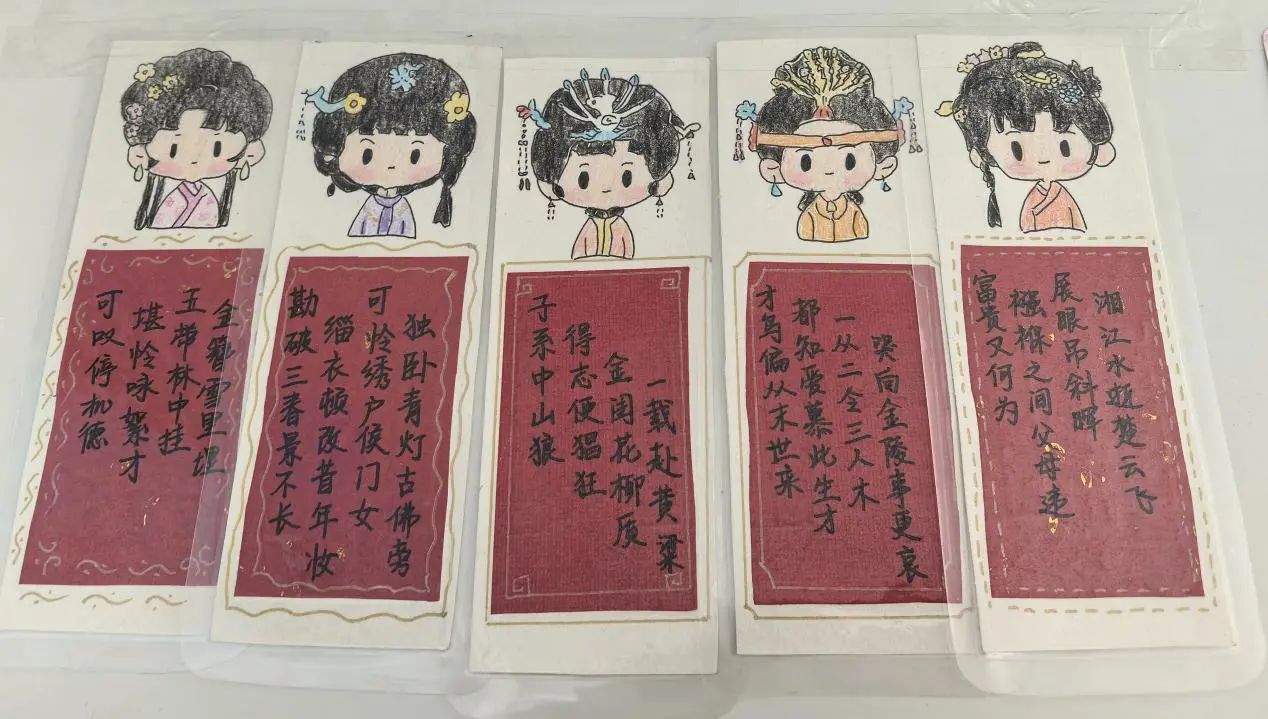 可叹停机德
堪怜咏絮才
玉带林中挂
金簪雪里埋
勘破三春景不长
缁衣顿改昔年妆
可怜绣户侯门女
独卧青灯古佛旁
子系中山狼
得志便猖狂
金闺花柳质
一载赴黄粱
凡鸟偏从末世来
都知爱慕此生才
一从二令三人木
哭向金陵事更哀
富贵又何为
襁褓之间父母违
展眼吊斜晖
湘江水逝楚云飞